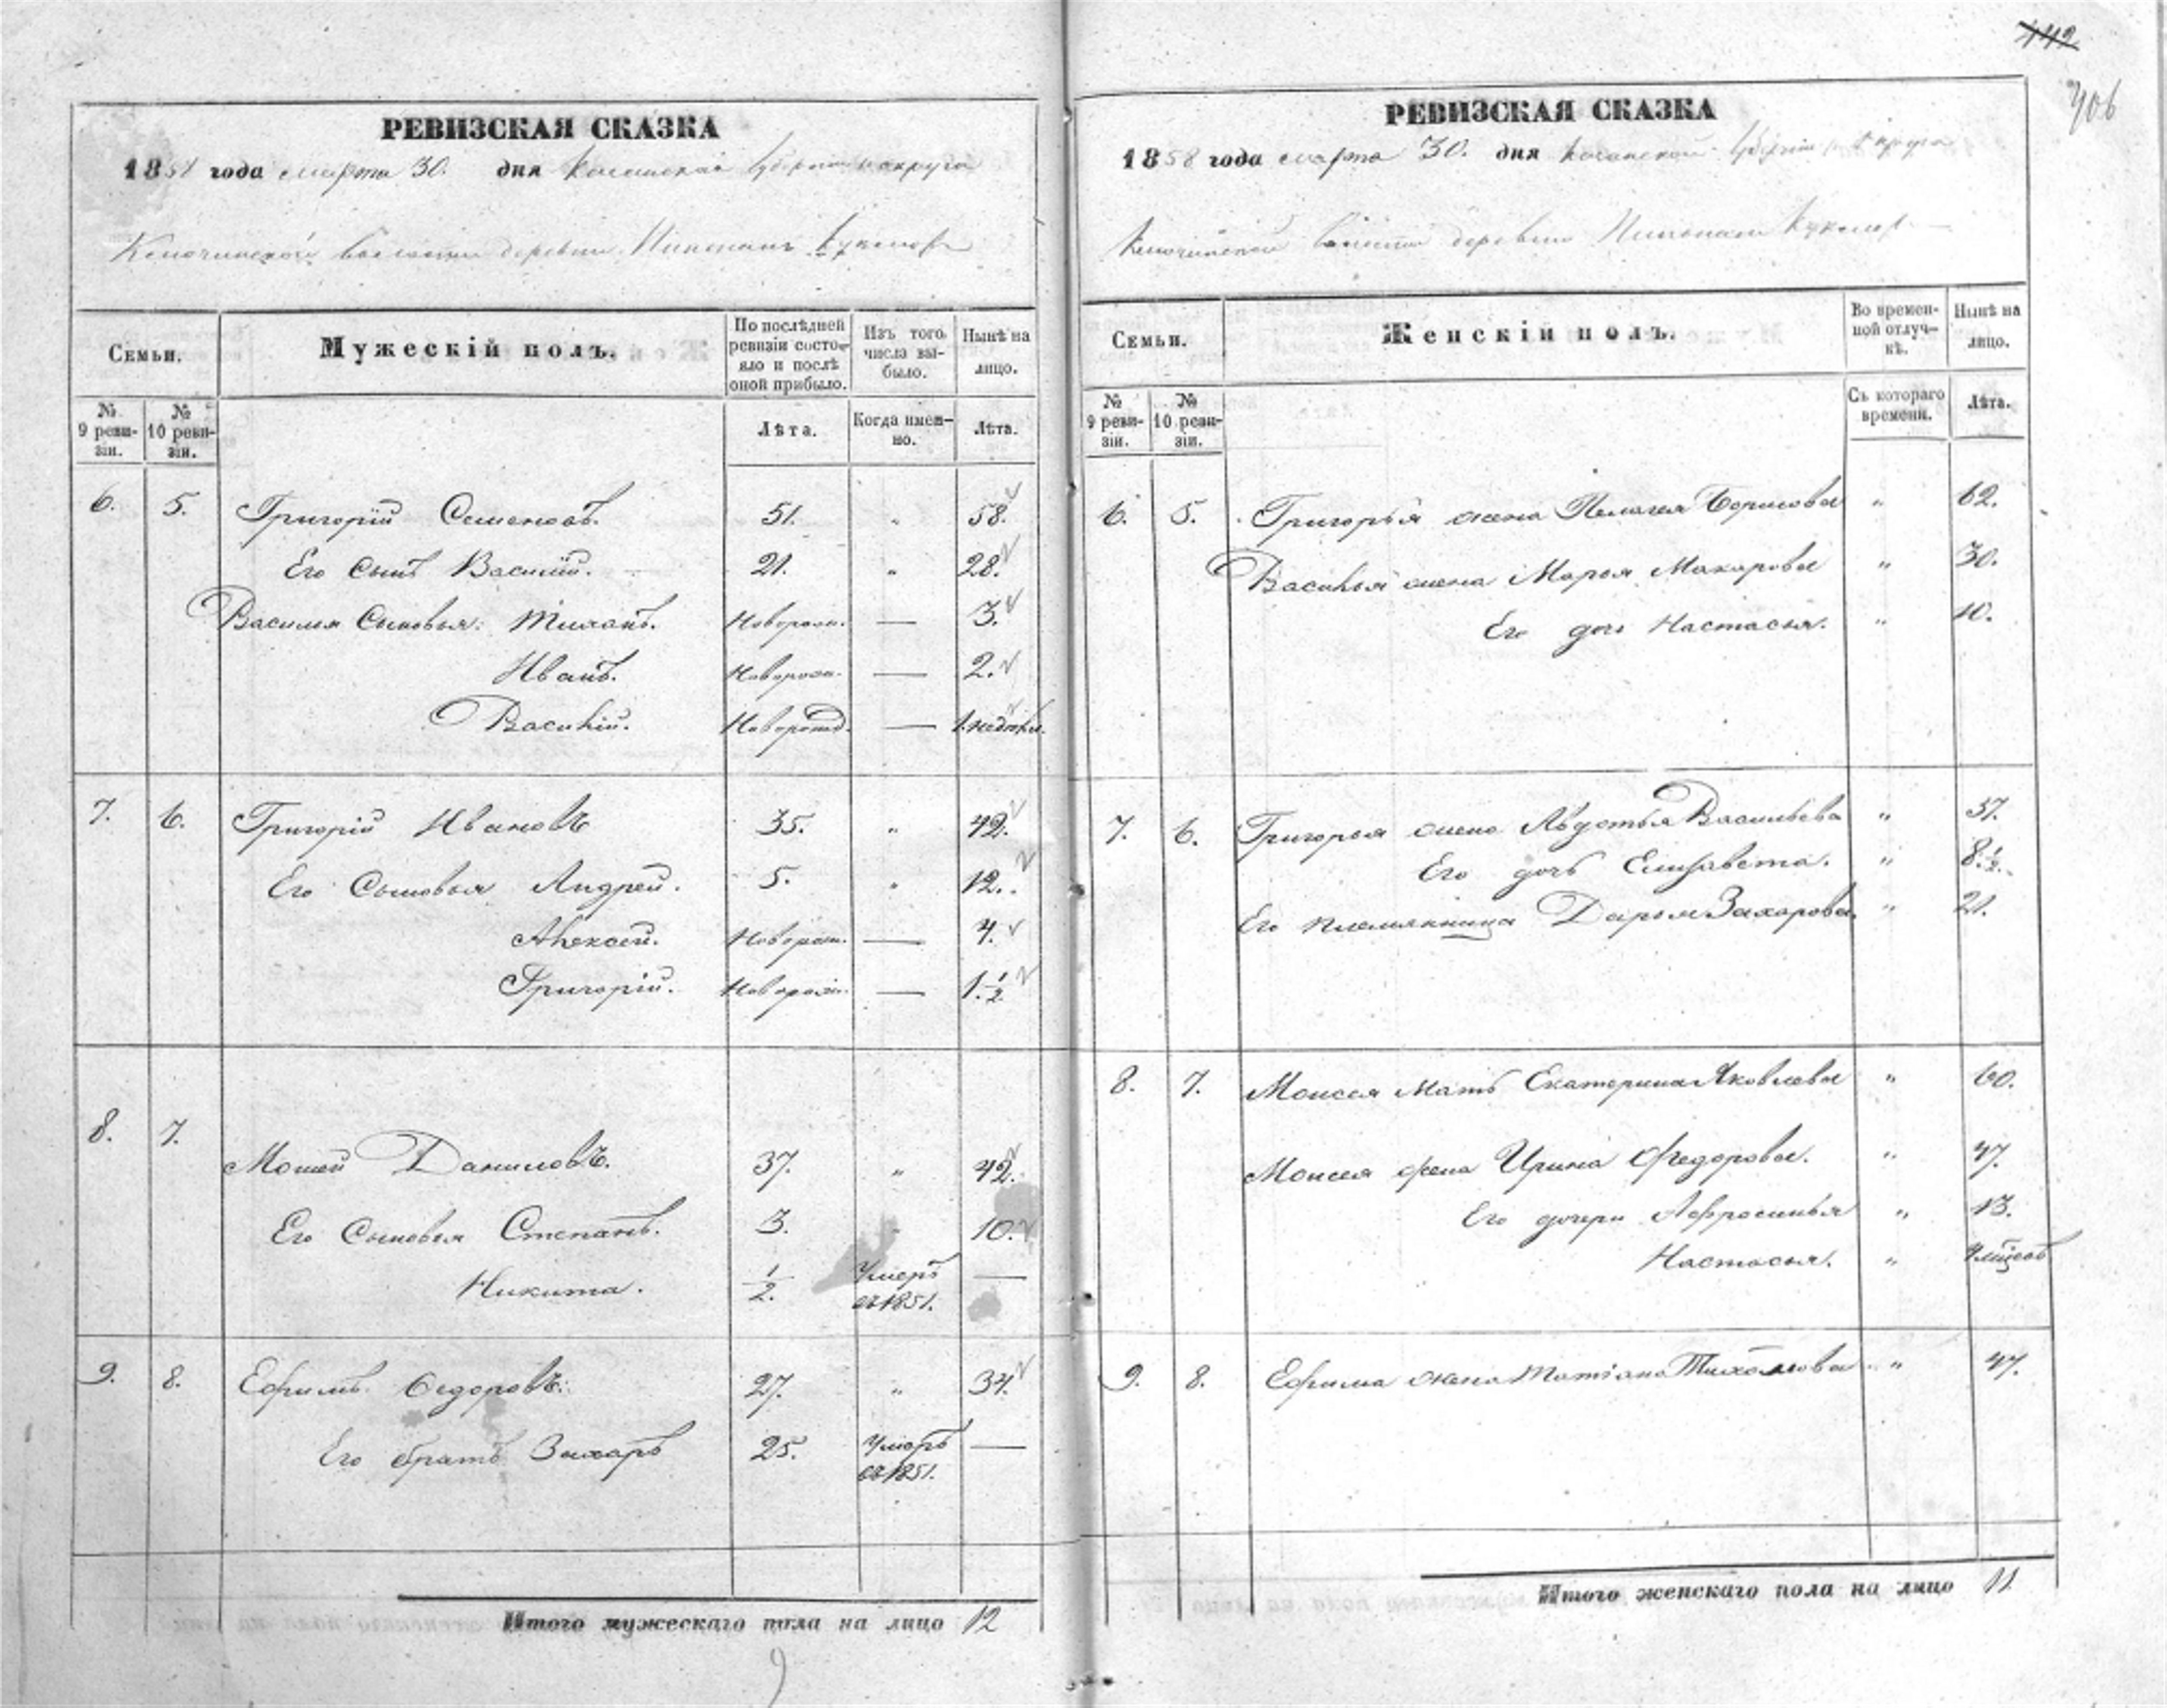 442
406
РЕВИЗСКАЯ СКАЗКА
1858 года марта 30. дня Казанской Губернии и округа
Ключинской волости деревни Кукмор
Семьи.
Мужескій полъ.
По послѣдней ревизіи состояло и послѣ оной прибыло.
Изъ того числа выбыло.
Нынѣ на лицо.
№ 9 ревизіи.
№ 10 ревизіи.
Лѣта.
Когда именно.
Лѣта.
6. 5. Григорій Семеновъ. 51. " 58.
Его Сынъ Василій. 21. " 28.
Василья Сыновья: Новорож. — 3.
Иванъ. Новорож. — 2.
Василій. Новорожд. — 1. недѣли.
7. 6. Григорій Ивановъ 35. " 42.
Его Сыновья Андрей. 5. " 12.
Алексей. Новорож. — 4.
Григорій. Новорож. — 1. 1/2
8. 7. Моисей Даниловъ. 37. " 42.
Его Сыновья Степанъ. 3. " 10.
Никита. 1/2. Умеръ въ 1851. —
9. 8. Ефимъ Федоровъ. 27. " 34.
Его братъ Захаръ 25. Умеръ въ 1851. —
Итого мужескаго пола на лицо 12
РЕВИЗСКАЯ СКАЗКА
1858 года марта 30. дня Казанской Губерніи и округа
Ключинской волости деревни Кукмор
Семьи.
Женскій полъ.
Во временной отлучкѣ.
Нынѣ на лицо.
№ 9 ревизіи.
№ 10 ревизіи.
Съ котораго времени.
Лѣта.
6. 5. Григорья жена Пелагея Борисова " 62.
Василья жена Марья Макарова " 30.
Его дочь Настасья. " 10.
7. 6. Григорья жена Авдотья Васильева " 37.
Его дочь Елизавета. " 8. 1/2.
Его племянница Дарья Захарова. " 21.
8. 7. Моисея Мать Екатерина Яковлева " 60.
Моисея жена Ирина Федорова. " 47.
Его дочери Афросинья " 13.
Настасья. "
9. 8. Ефима жена Матіана Тихонова " 47.
Итого женскаго пола на лицо 11